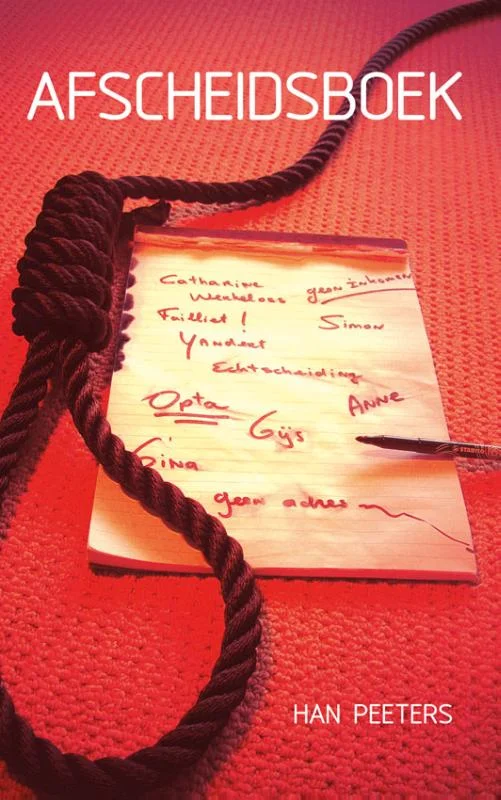 AFSCHEIDSBOEK
Catharine geen inkomen
Werkeloos
Failliet! Simon
Yandert
Echtscheiding
Opta Gijs ANNE
Gina
geen adres
STABILO
HAN PEETERS